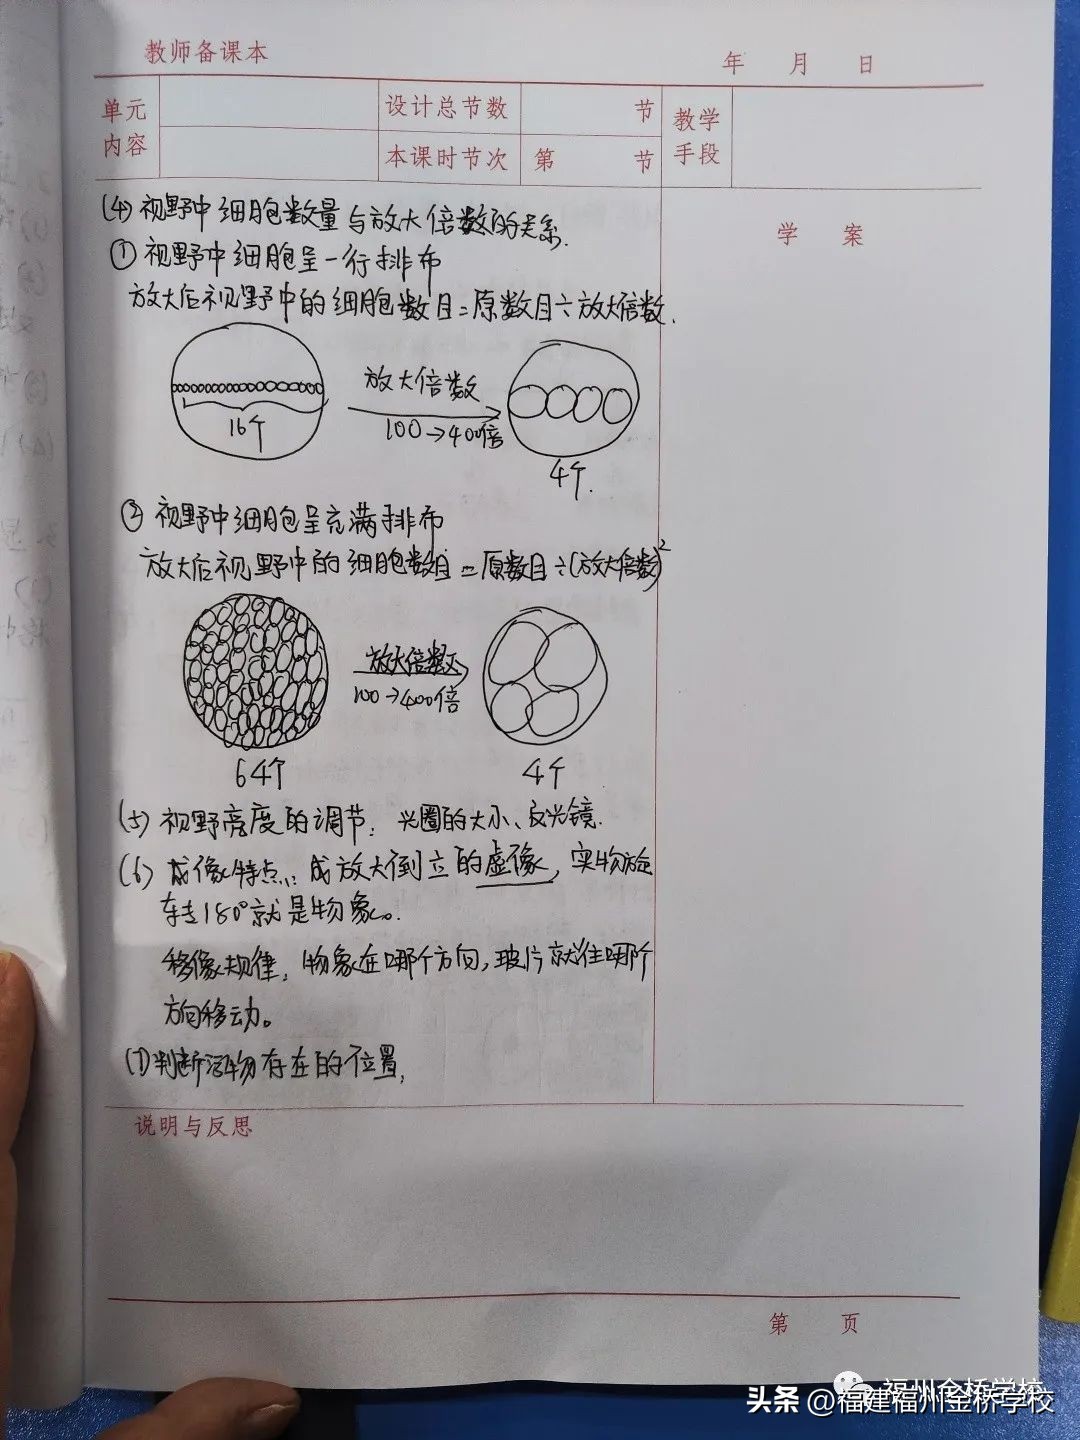 教师备课本
年 月 日
单元内容
设计总节数 节
本课时节次 第 节
教学手段
学 案
(4) 视野中细胞数量与放大倍数的关系.
① 视野中细胞呈一行排布
放大后视野中的细胞数目=原数目÷放大倍数.
16个
放大倍数
100→400倍
4个.
② 视野中细胞呈充满排布
放大后视野中的细胞数目=原数目÷(放大倍数)²
64个
放大倍数
100→400倍
4个
(5) 视野亮度的调节: 光圈的大小、反光镜.
(6) 成像特点: 成放大倒立的虚像, 实物旋
转180°就是物象。
移像规律: 物象在哪个方向, 玻片就往哪个
方向移动。
(7) 判断污物存在的位置,
说明与反思
第 页
福州金桥学校
头条 @福建福州金桥学校